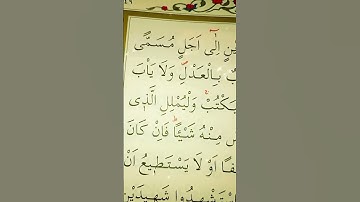 ينٍ اِلٰٓى اَجَلٍ مُسَمًّى
بٌ بِالْعَدْلِۖ وَلَا يَاْبَ
يَكْتُبْۚ وَلْيُمْلِلِ الَّذ۪ى
سْ مِنْهُ شَيْـًٔاۜ فَاِنْ كَانَ
فًا اَوْ لَا يَسْتَط۪يعُ اَنْ
تَشْهِدُوا شَه۪يدَيْنِ